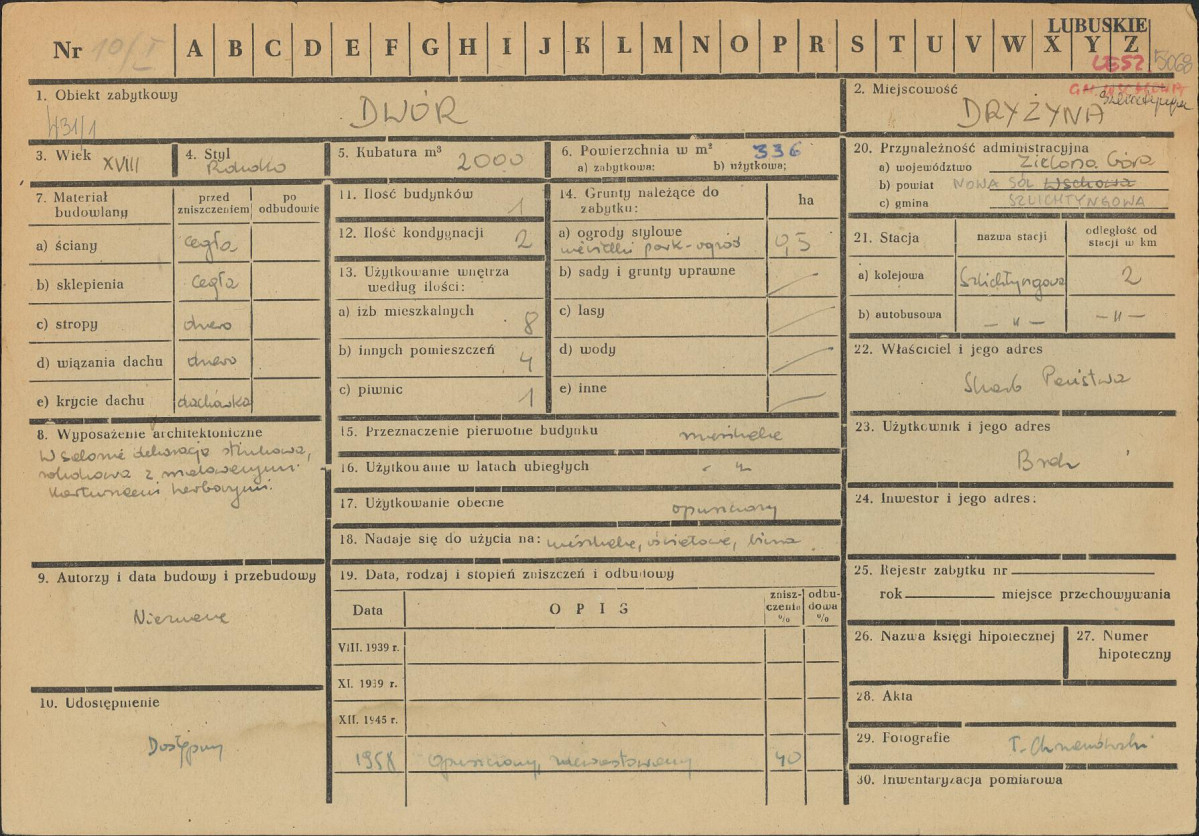 LUBUSKIE
Nr 10/I A B C D E F G H I J K L M N O P R S T U V W X Y Z
5068
1. Obiekt zabytkowy
DWÓR
431/1
2. Miejscowość
DRYŻYNA
3. Wiek XVIII
4. Styl
5. Kubatura m³ 2000
6. Powierzchnia w m² 336
a) zabytkowa: b) użytkowa:
20. Przynależność administracyjna
a) województwo Zielona Góra
b) powiat NOWA SÓL Wschowa
c) gmina SZLICHTYNGOWA
7. Materiał budowlany
przed zniszczeniem
po odbudowie
a) ściany cegła
b) sklepienia cegła
c) stropy drewo
d) wiązania dachu drewo
e) krycie dachu dachówka
11. Ilość budynków 1
12. Ilość kondygnacji 2
13. Użytkowanie wnętrza
według ilości:
a) izb mieszkalnych 8
b) innych pomieszczeń 4
c) piwnic 1
14. Grunty należące do
zabytku:
ha
a) ogrody stylowe
park-ogród 0,5
b) sady i grunty uprawne
c) lasy
d) wody
e) inne
21. Stacja
nazwa stacji
odległość od
stacji w km
a) kolejowa Szlichtyngowa 2
b) autobusowa – " – – " –
22. Właściciel i jego adres
Skarb Państwa
8. Wyposażenie architektoniczne
W salonie dekoracja stiukowa,
rokokowa z malowanymi
kartuszami herbowymi.
15. Przeznaczenie pierwotne budynku mieszkalne
16. Użytkowanie w latach ubiegłych - " -
17. Użytkowanie obecne opuszczony
18. Nadaje się do użycia na: mieszkalne, oświatowe, biura
23. Użytkownik i jego adres
Brak
24. Inwestor i jego adres:
9. Autorzy i data budowy i przebudowy
Nieznane
19. Data, rodzaj i stopień zniszczeń i odbudowy
Data
OPIS
znisz-
czenia
%
odbu-
dowa
%
VIII. 1939 r.
XI. 1939 r.
XII. 1945 r.
1958 Opuszczony, zdewastowany 40
25. Rejestr zabytku nr
rok miejsce przechowywania
26. Nazwa księgi hipotecznej
27. Numer
hipoteczny
10. Udostępnienie
Dostępny
28. Akta
29. Fotografie
30. Inwentaryzacja pomiarowa